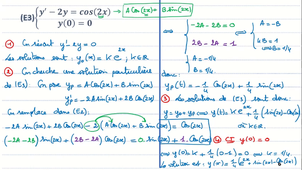 (E3) { y' − 2y = cos(2x) → A cos(2x) + B sin(2x)
y(0) = 0
① On résout y' − 2y = 0
Les solutions sont : y_H(x) = K e^{2x}, K∈ℝ
② On cherche une solution particulière
de (E3). On pose y_P = A cos(2x) + B sin(2x)
y'_P = −2A sin(2x) + 2B cos(2x)
On remplace dans (E3) :
−2A sin(2x) + 2B cos(2x) − 2(A cos(2x) + B sin(2x)) = cos(2x)
(−2A−2B) sin(2x) + (2B−2A) cos(2x) = 0. sin(2x) + 1. cos(2x)
⇔ { −2A − 2B = 0
2B − 2A = 1
⇔ { A = −B
4B = 1
{ A = −1/4
B = 1/4
donc :
y_P(x) = −1/4 cos(2x) + 1/4 sin(2x)
③ Les solutions de (E3) sont donc :
y = y_H + y_P ⇔ y(x) = K e^{2x} + 1/4 (sin(2x) − cos(2x))
où K∈ℝ.
④ CI y(0) = 0
⇔ y(0) = K + 1/4 (0−1) = 0 ⇔ K = 1/4.
La solution est : y(x) = 1/4 (e^{2x} + sin(2x) − cos(2x))